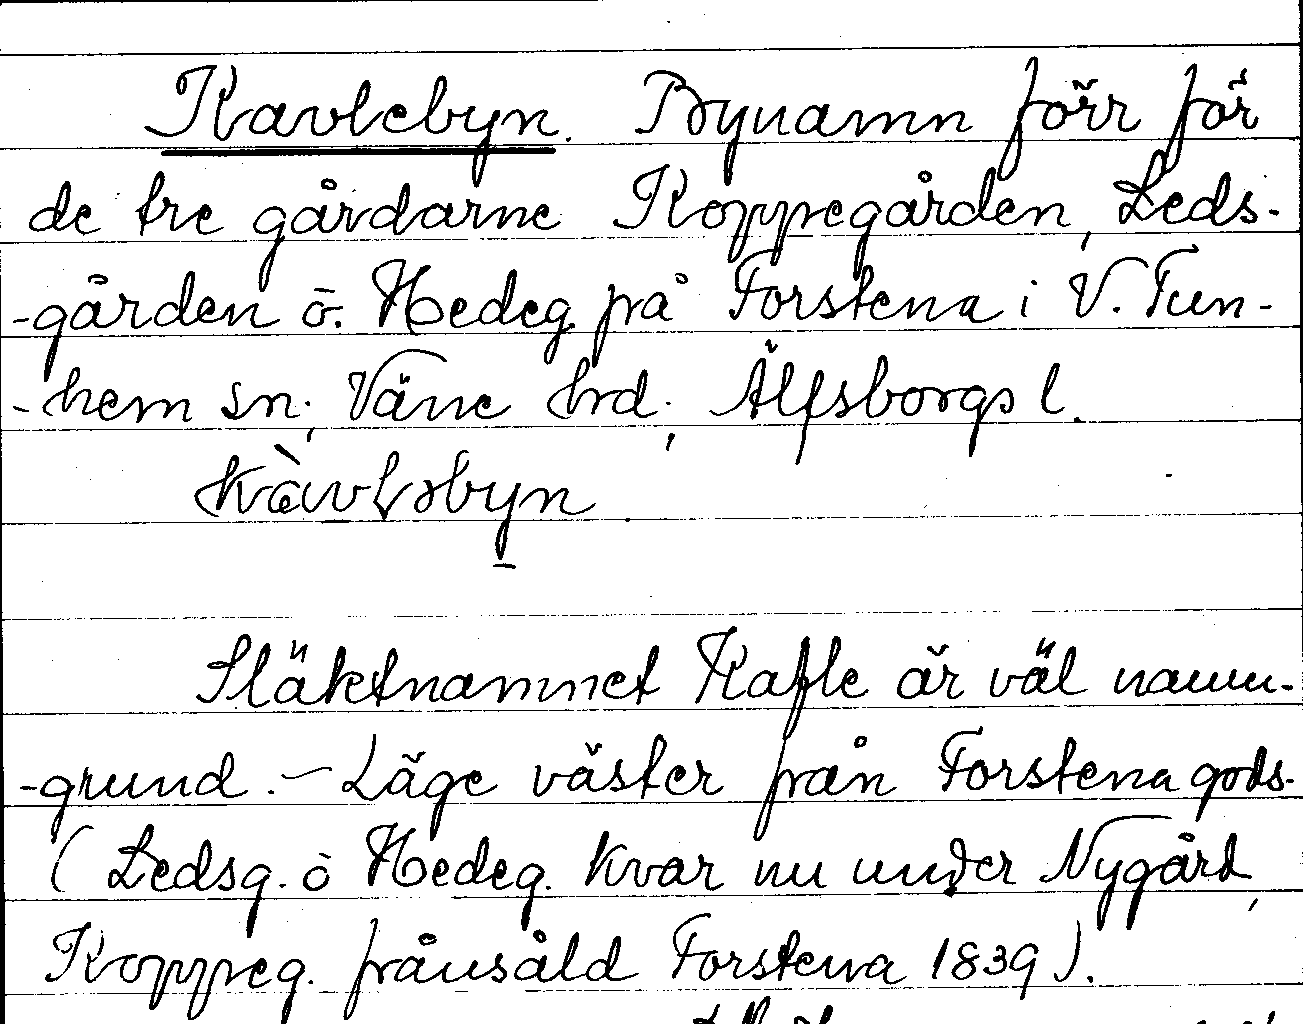 Kavlebyn. Bynamn förr för
de tre gårdarne Koppegården, Leds-
-gården o. Hedeg. på Forstena i V. Tun-
-hem sn; Väne hrd; Älfsborgs l.
Släktnamnet Kafle är väl namn-
-grund. – Läge väster från Forstena gods.
(Ledsg. o Hedeg. kvar nu under Nygård,
Koppeg. frånsåld Forstena 1839).